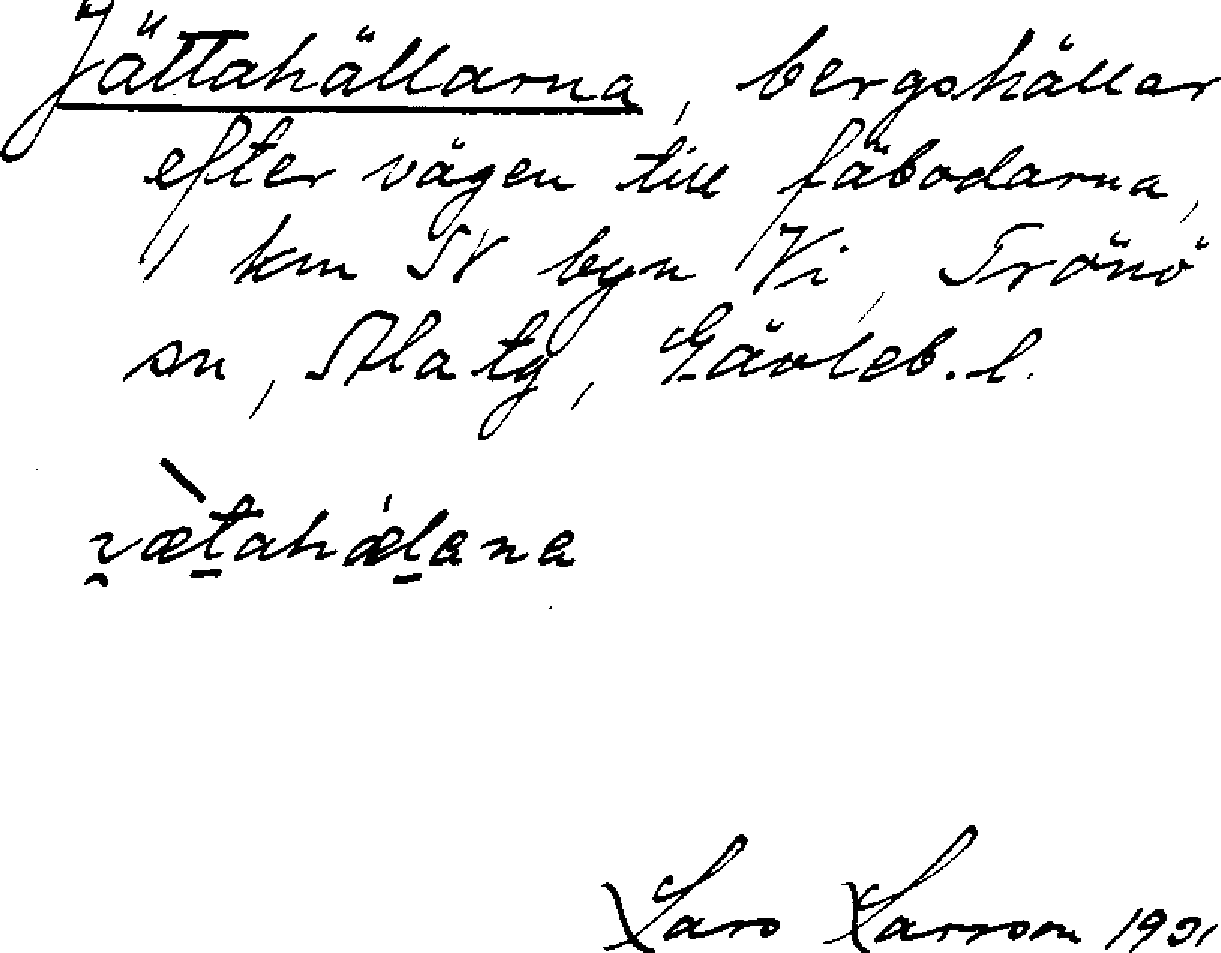 Jättahällarna, bergshällar
efter vägen till fäbodarna,
1 km N byn Vi, Trönö
sn, Ala tg, Gävleb. l.
Lars Larsson 1931